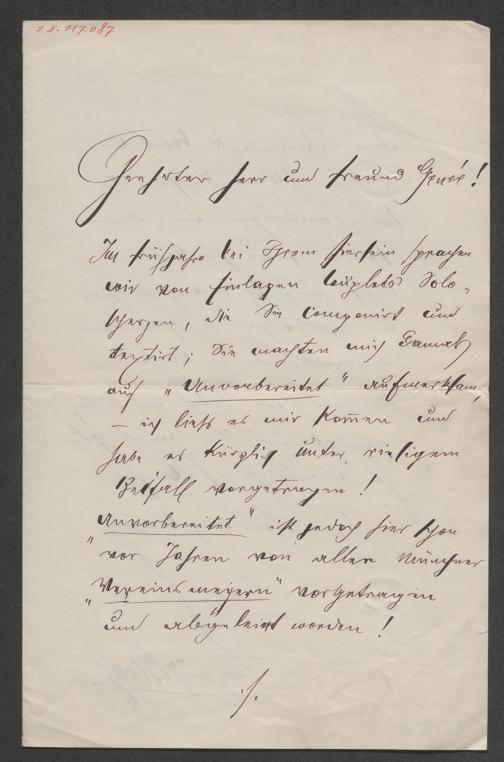 I.N. 117.087
Geehrter Herr und Freund Genée!
Im Frühjahre bei Ihrem Hiersein sprachen
wir von Einlagen Couplets Solo-
scherzen, die Sie componirt und
textirt; Sie machten mich damals
auf „Unvorbereitet" aufmerksam,
– ich ließ es mir kommen und
habe es kürzlich unter riesigem
Beifall vorgetragen!
„Unvorbereitet" ist jedoch hier schon
vor Jahren von allen Münchner
„Vereinsmeyern" vorgetragen
und abgeleiert worden!
./.